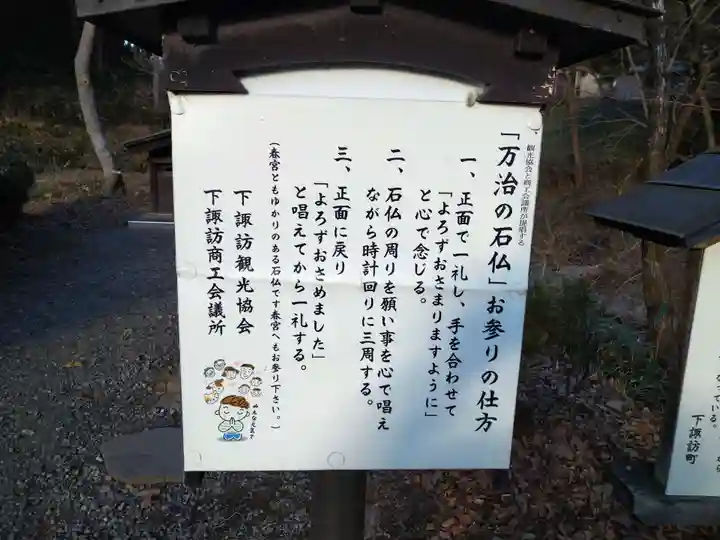 観光協会と商工会議所が提唱する
「万治の石仏」お参りの仕方
一、正面で一礼し、手を合わせて
「よろずおさまりますように」
と心で念じる。
二、石仏の周りを願い事を心で唱え
ながら時計回りに三周する。
三、正面に戻り
「よろずおさめました」
と唱えてから一礼する。
(春宮ともゆかりのある石仏です春宮へもお参り下さい。)
下諏訪観光協会
下諏訪商工会議所
ている。
下諏訪町